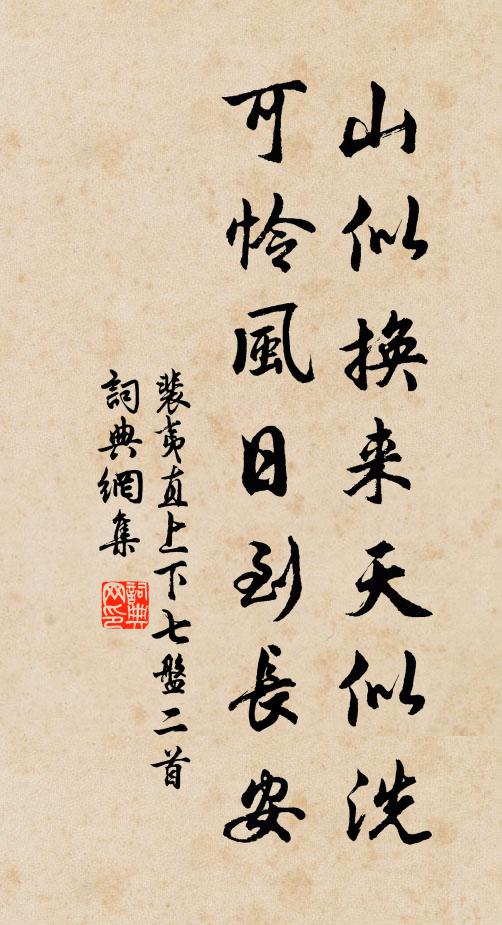 山似換来天似洗
可怜風日到長安
裴夷直上下七盤二首
詞典網集
詞典网印